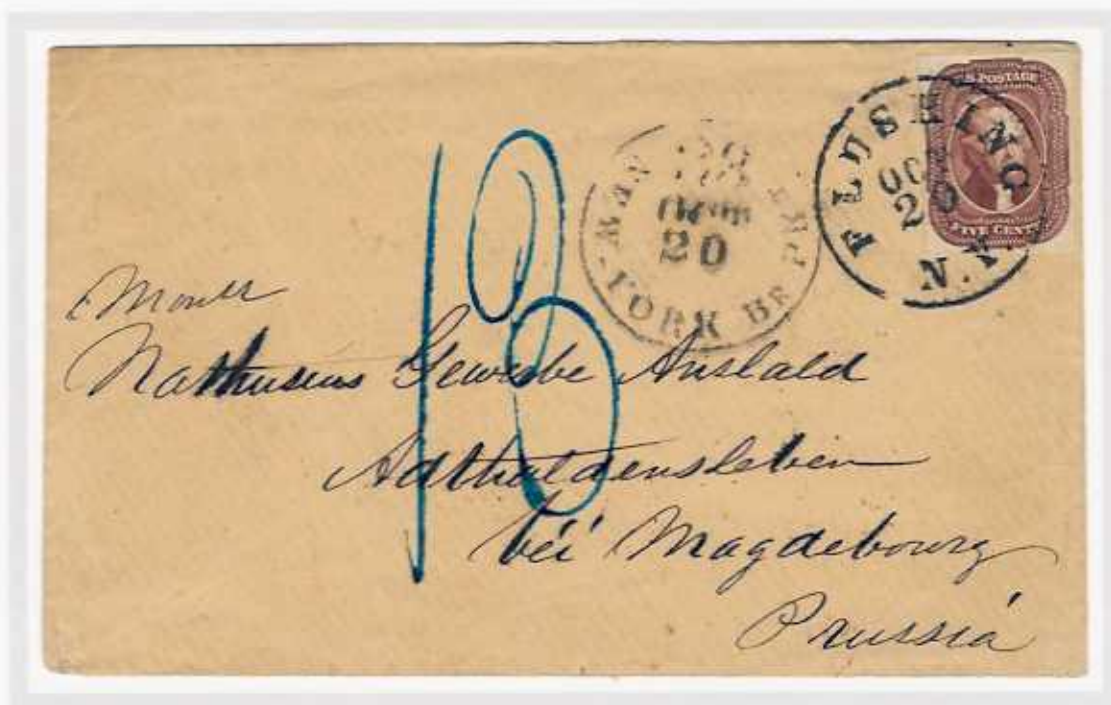 U.S. POSTAGE
FIVE CENTS
FLUSHING
OCT
20
N.Y.
NEW-YORK BR PKT
20
13
Nathusius Gewerbe Anstald
Althaldensleben
béi Magdebourg
Prussiá